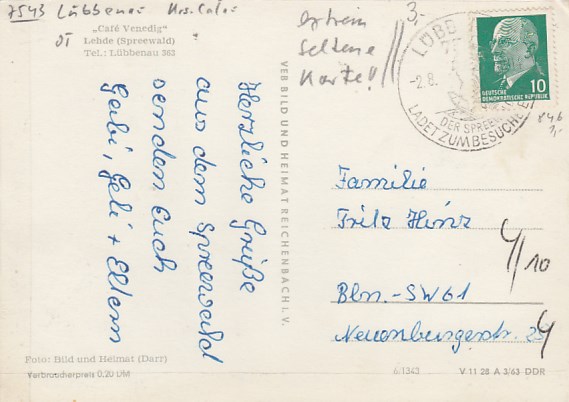 7543 Lübbenau Krs. Calau
OT
„Café Venedig"
Lehde (Spreewald)
Tel.: Lübbenau 363
extrem
seltene
Karte!!
3,-
LÜBB
-2.8.
DER SPREEW
LADET ZUM BESUCH E
10
DEUTSCHE
DEMOKRATISCHE REPUBLIK
846
3,-
Herzliche Grüße
aus dem Spreewald
senden Euch
Gabi, Geli + Eltern
VEB BILD UND HEIMAT REICHENBACH I. V.
Familie
Fritz Hinz
Bln.-SW61
Neuenburgerstr.
4/10
Foto: Bild und Heimat (Darr)
Verbraucherpreis 0,20 DM
6/1343
V 11 28 A 3/63 DDR